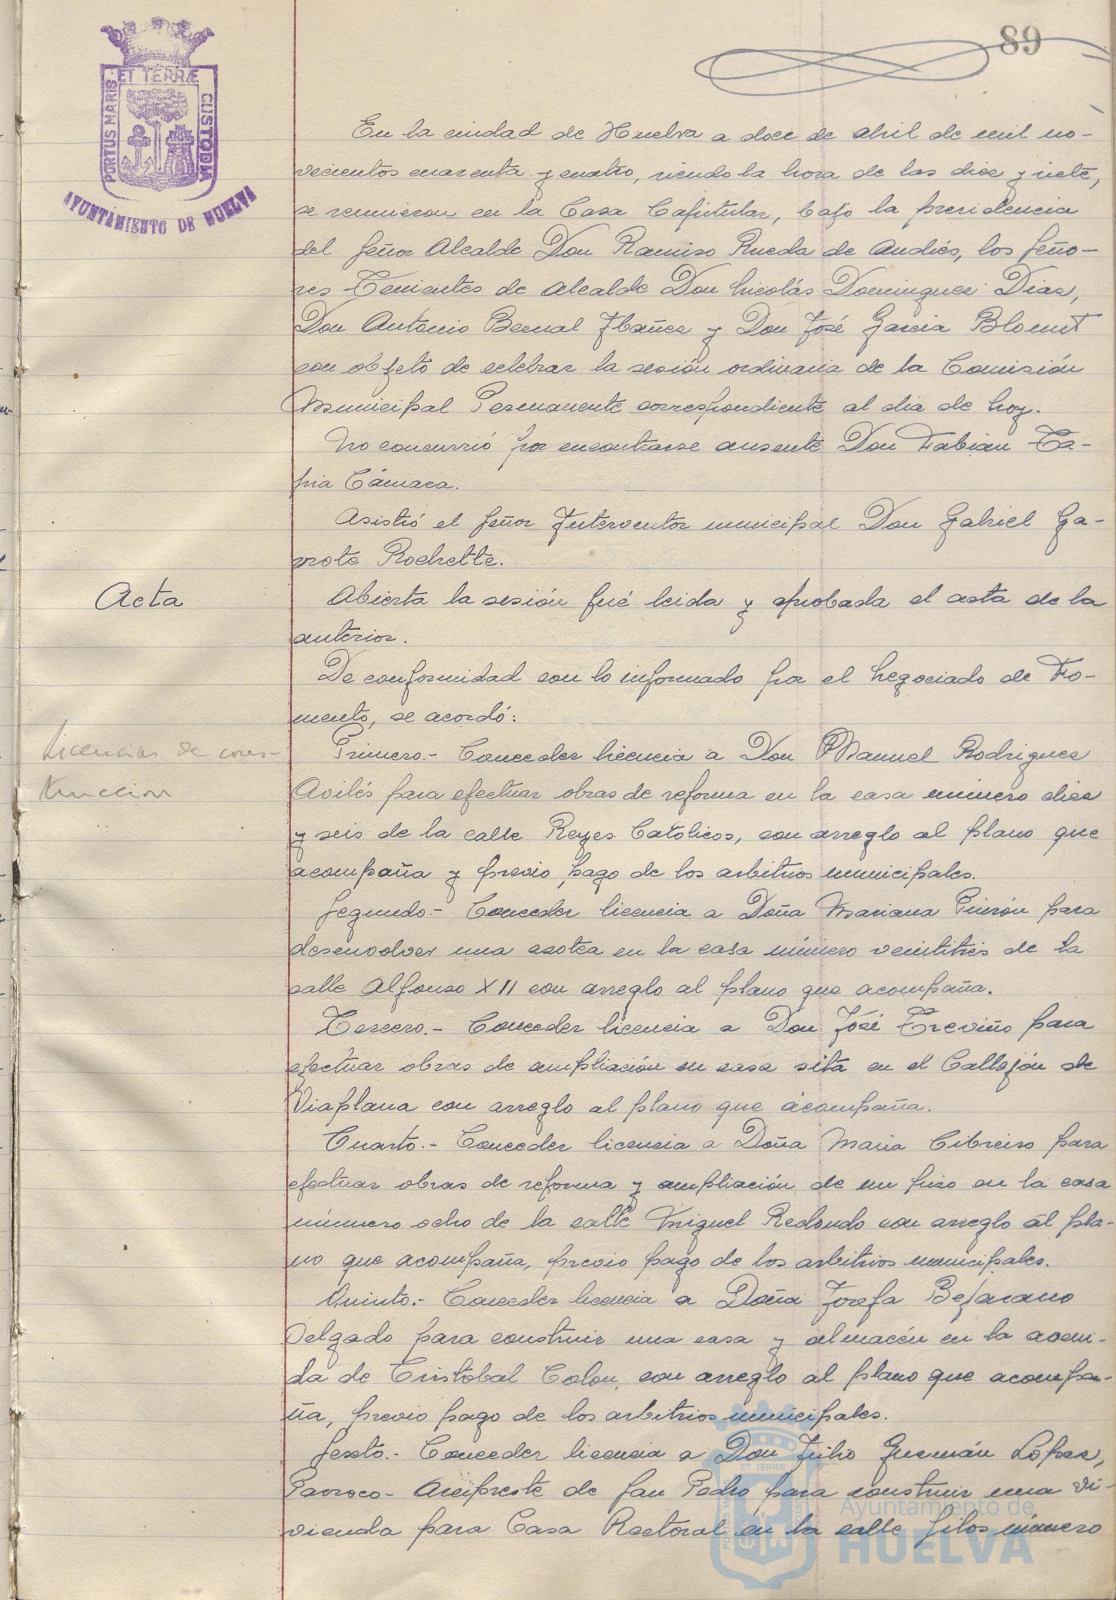 89
PORTUS MARIS ET TERRÆ CUSTODIA
AYUNTAMIENTO DE HUELVA
En la ciudad de Huelva a doce de abril de mil no-
vecientos cuarenta y cuatro, siendo la hora de las diez y siete,
se reunieron en la Casa Capitular, bajo la presidencia
del Señor Alcalde Don Ramiro Rueda de Andrés, los Seño-
res Tenientes de Alcalde Don Nicolás Dominguez Diaz,
Don Antonio Bernal Ibañez y Don José Garcia Blount
con objeto de celebrar la sesión ordinaria de la Comisión
Municipal Permanente correspondiente al dia de hoy.
No concurrió por encontrarse ausente Don Fabian Ta-
pia Cámara.
Asistió el Señor Interventor municipal Don Gabriel Ga-
rrote Rochette.
Acta
Abierta la sesión fué leida y aprobada el acta de la
anterior.
De conformidad con lo informado por el Negociado de Fo-
mento, se acordó:
Licencias de cons-
trucción
Primero.- Conceder licencia a Don Manuel Rodriguez
Avilés para efectuar obras de reforma en la casa número diez
y seis de la calle Reyes Católicos, con arreglo al plano que
acompaña y previo pago de los arbitrios municipales.
Segundo.- Conceder licencia a Doña Mariana Pinzón para
desenvolver una azotea en la casa número veintitrés de la
calle Alfonso XII con arreglo al plano que acompaña.
Tercero.- Conceder licencia a Don José Treviño para
efectuar obras de ampliación en casa sita en el Callejón de
Viaplana con arreglo al plano que acompaña.
Cuarto.- Conceder licencia a Doña Maria Cibreiro para
efectuar obras de reforma y ampliación de un piso en la casa
número ocho de la calle Miguel Redondo con arreglo al pla-
no que acompaña, previo pago de los arbitrios municipales.
Quinto.- Conceder licencia a Doña Josefa Bejarano
Delgado para construir una casa y almacén en la aveni-
da de Cristóbal Colon, con arreglo al plano que acompa-
ña, previo pago de los arbitrios municipales.
Sexto.- Conceder licencia a Don Julio Guzmán López,
Parroco-Arcipreste de San Pedro para construir una vi-
vienda para Casa Rectoral en la calle Silos número
Ayuntamiento de
HUELVA